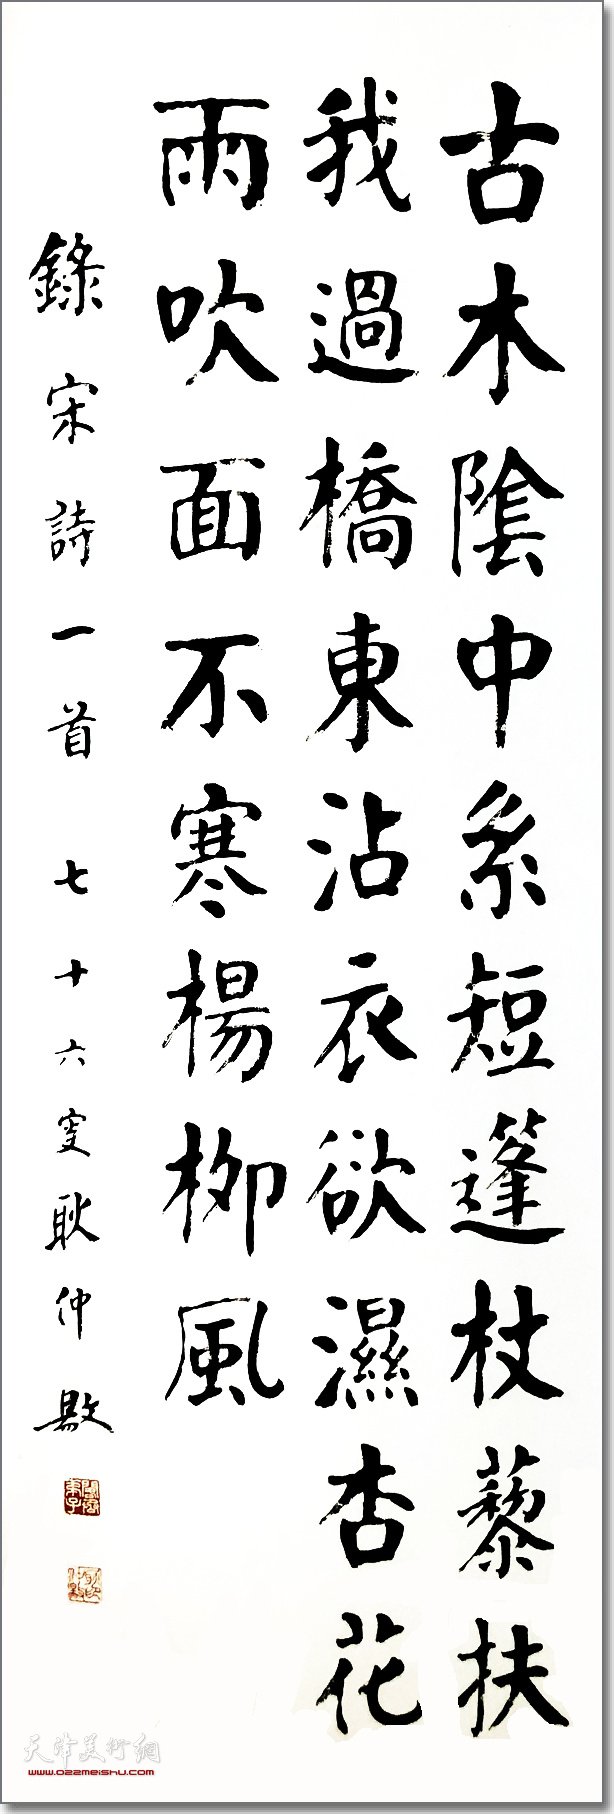 古木陰中系短蓬杖藜扶
我過橋東沾衣欲濕杏花
雨吹面不寒楊柳風
錄宋詩一首 七十六叟耿仲敭
天津美術網
www.022meishu.com